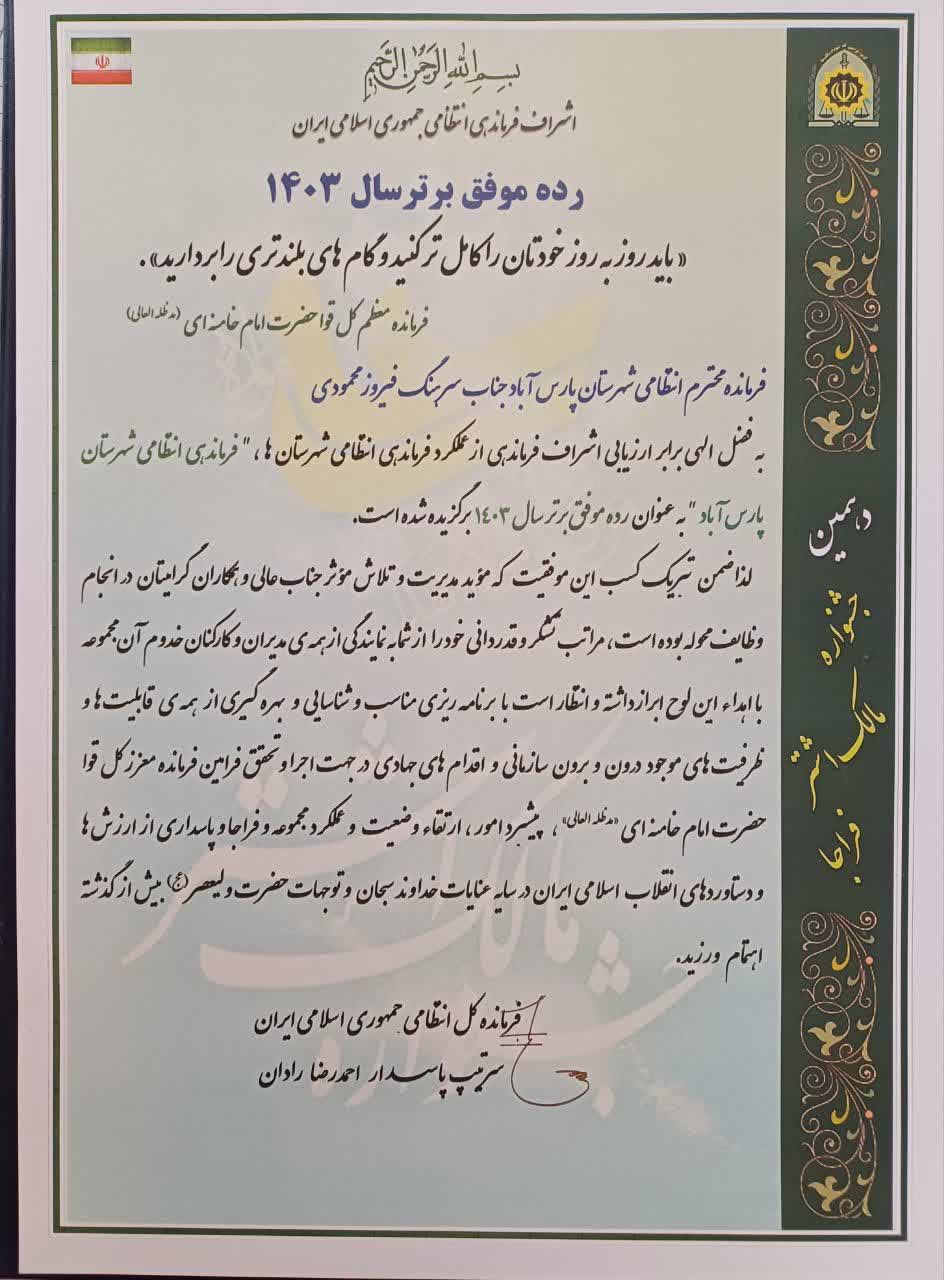 بسم الله الرحمن الرحیم
اشراف فرماندهی انتظامی جمهوری اسلامی ایران
رده موفق برتر سال ۱۴۰۳
«باید روز به روز خودتان را کامل تر کنید و گام های بلندتری را بردارید».
فرمانده معظم کل قوا حضرت امام خامنه ای (مدظله العالی)
فرمانده محترم انتظامی شهرستان پارس آباد جناب سرهنگ فیروز محمودی
به فضل الهی برابر ارزیابی اشراف فرماندهی از عملکرد فرماندهی انتظامی شهرستان ها، "فرماندهی انتظامی شهرستان
پارس آباد" به عنوان رده موفق برتر سال ۱۴۰۳ برگزیده شده است.
لذا ضمن تبریک کسب این موفقیت که مؤید مدیریت و تلاش مؤثر جناب عالی و همکاران گرامیتان در انجام
وظایف محوله بوده است، مراتب تشکر و قدردانی خود را از شما به نمایندگی از همه ی مدیران و کارکنان خدوم آن مجموعه
با اهداء این لوح ابراز داشته و انتظار است با برنامه ریزی مناسب و شناسایی و بهره گیری از همه ی قابلیت ها و
ظرفیت های موجود درون و برون سازمانی و اقدام های جهادی در جهت اجرا و تحقق فرامین فرمانده معزز کل قوا
حضرت امام خامنه ای «مدظله العالی»، پیشبرد امور، ارتقاء وضعیت و عملکرد مجموعه و فراجا و پاسداری از ارزش ها
و دستاوردهای انقلاب اسلامی ایران در سایه عنایات خداوند سبحان و توجهات حضرت ولیعصر (عج) بیش از گذشته
اهتمام ورزید.
فرمانده کل انتظامی جمهوری اسلامی ایران
سرتیپ پاسدار احمدرضا رادان
دهمین
جشنواره
مالک اشتر
فراجا
جشنواره
مالک اشتر